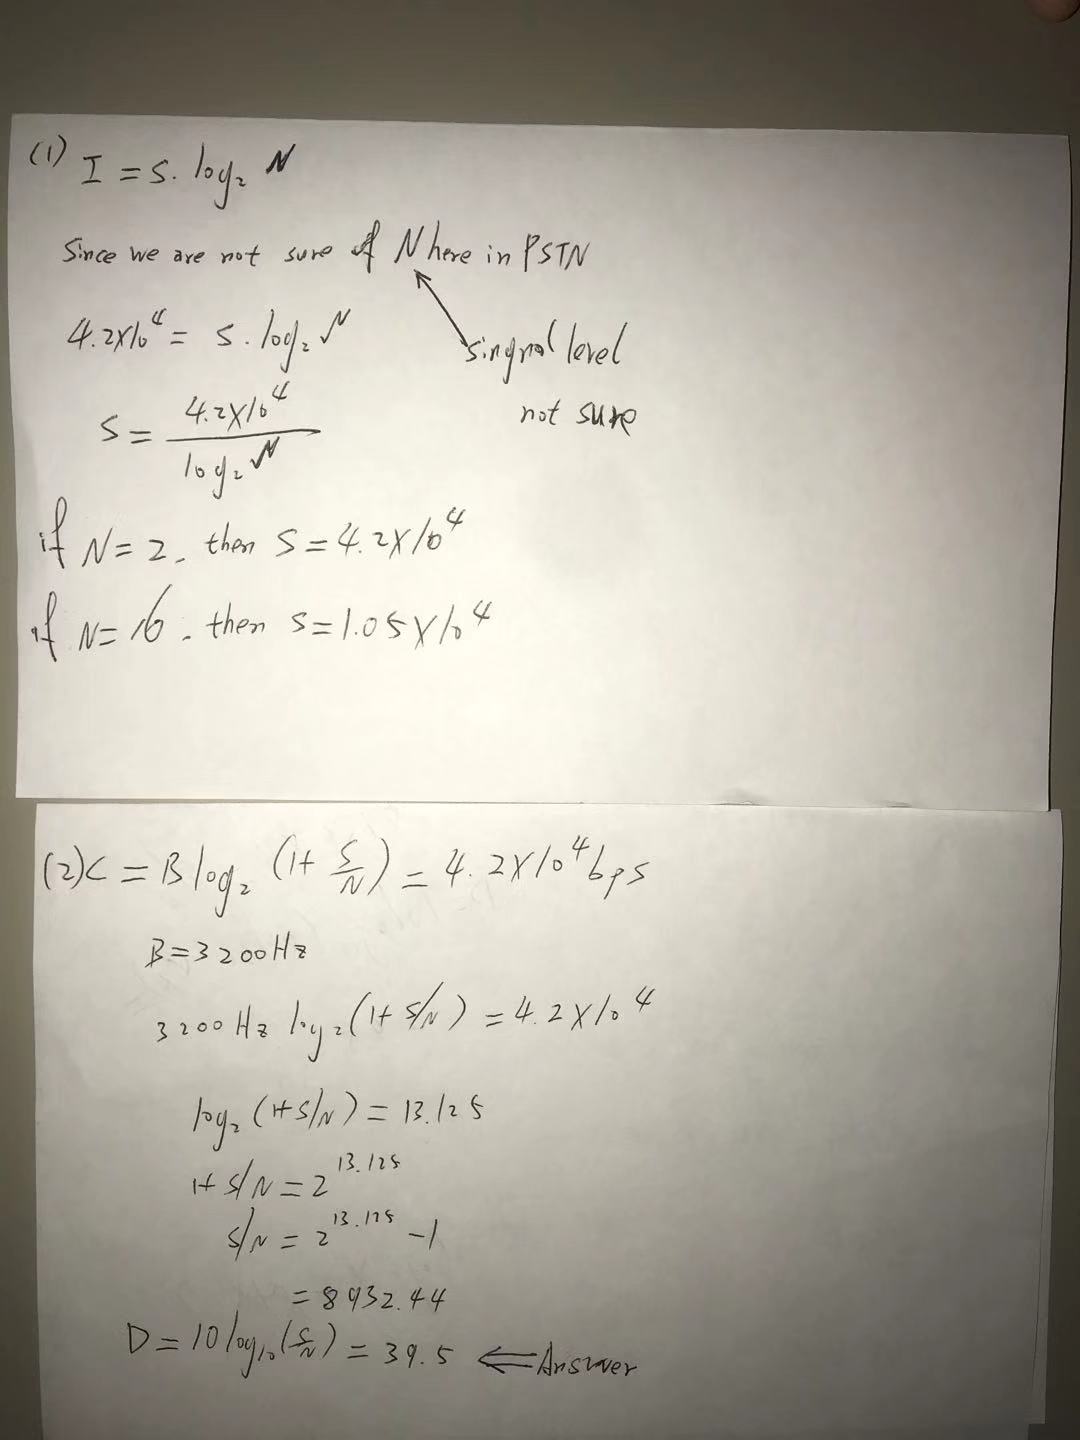 (1) I = S. log₂ N
Since we are not sure of N here in PSTN
4.2X10⁴ = S. log₂ N
singnal level
not sure
S = 4.2X10⁴ / log₂ N
if N = 2. then S = 4.2X10⁴
if N = 16. then S = 1.05X10⁴
(2) C = B log₂ (1+ S/N) = 4.2X10⁴ bps
B = 3200Hz
3200Hz log₂(1+ S/N) = 4.2X10⁴
log₂ (1+S/N) = 13.125
1+ S/N = 2^13.125
S/N = 2^13.125 -1
= 8932.44
D = 10 log₁₀(S/N) = 39.5 ⇐ Answer